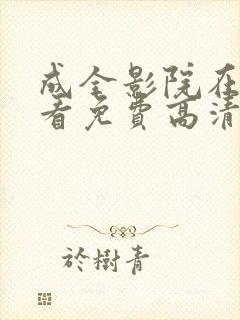 成全影院在
看免费高清
於樹青